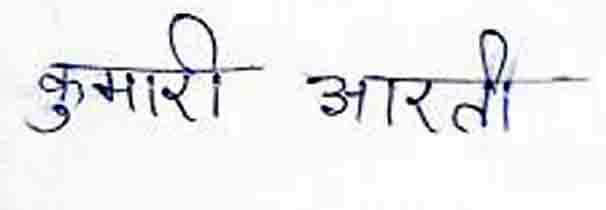 कुमारी आरती